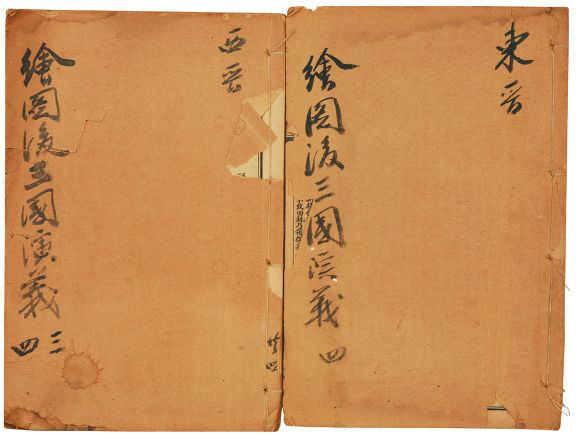 東晋
繪圖後三國演義 四
西晋
繪圖後三國演義
三
四